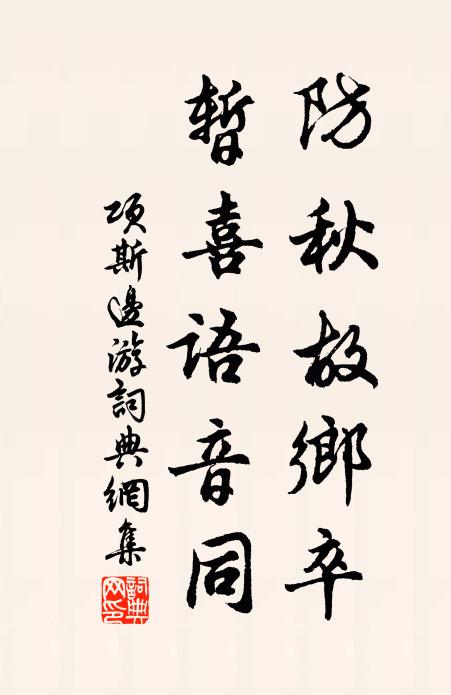 防秋故鄉卒
暫喜語音同
項斯邊游詞典網集
詞典網印